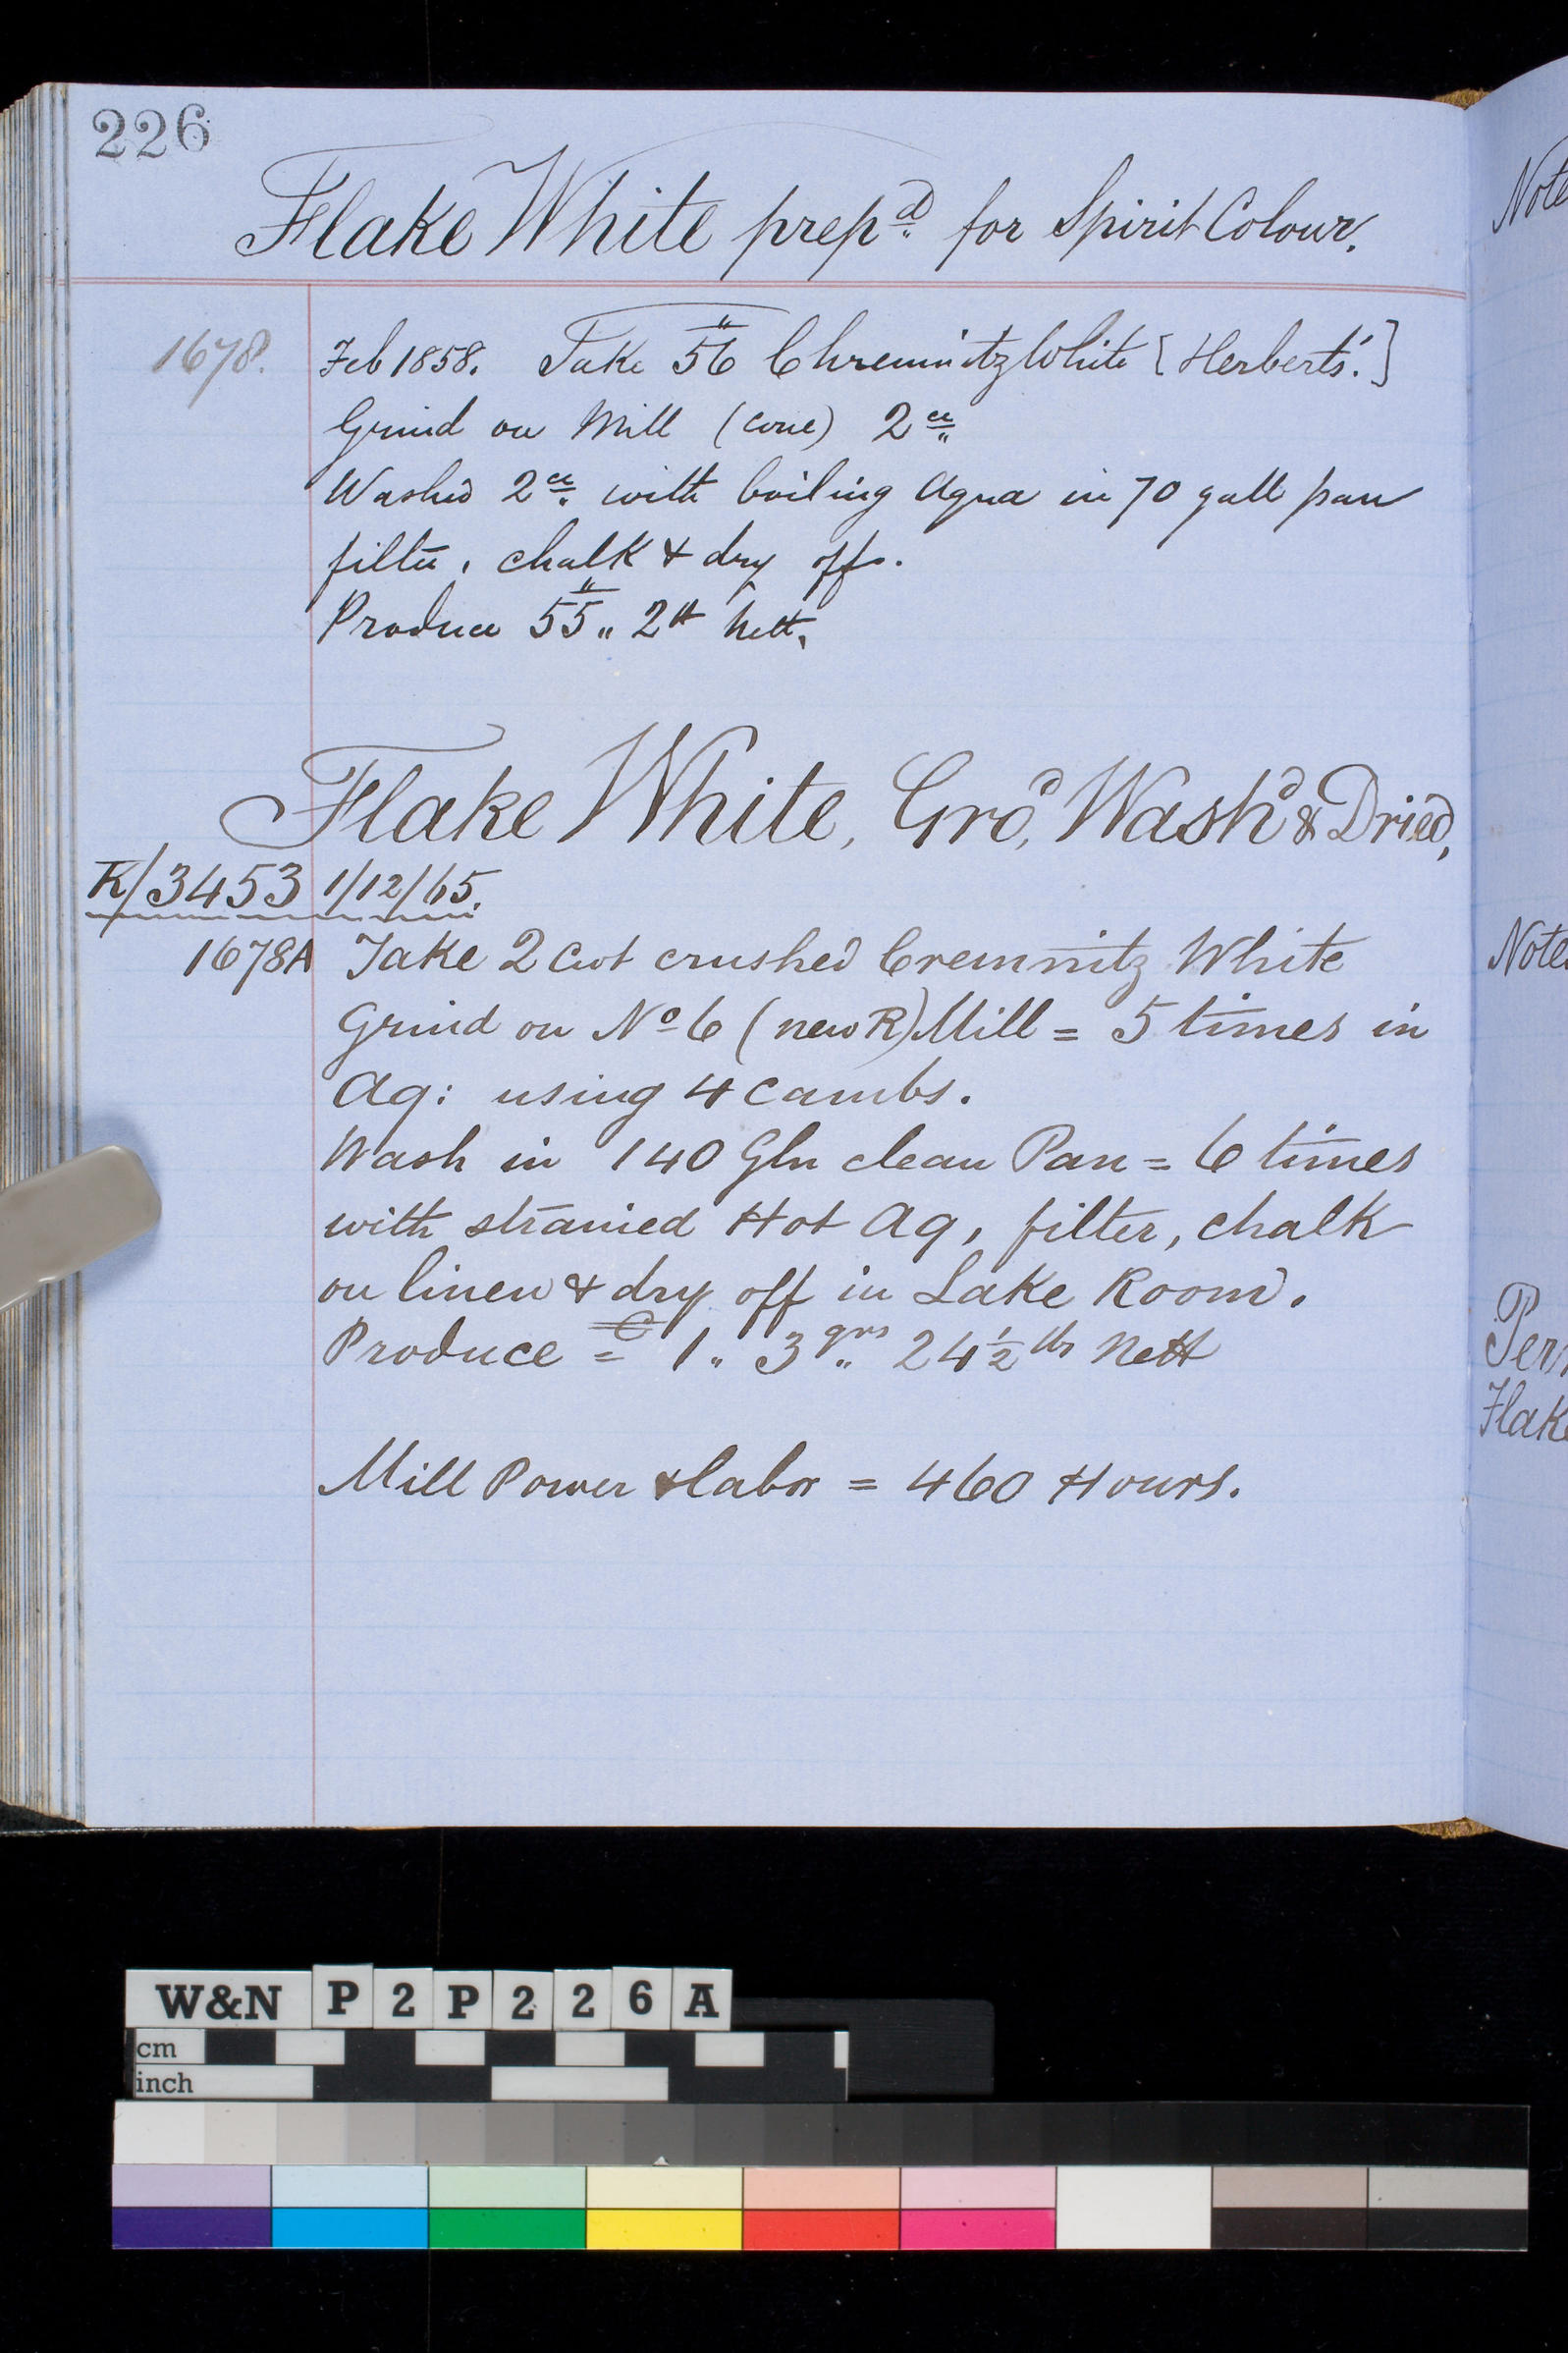 226
Flake White prepd for Spirit Colour.
1678. Feb 1858. Take 56 Chremnitz White [Herberts'.]
Grind on Mill (cone) 2ce
Washed 2ce with boiling Aqua in 70 gall pan
filter, chalk & dry off.
Produce 55 " 2 nett.
Flake White, Grd, Washd & Dried,
K/3453 1/12/65.
1678A Take 2 Cwt crushed Cremnitz White
Grind on No 6 (new R) Mill = 5 times in
Aq: using 4 cambs.
Wash in 140 Gln clean Pan = 6 times
with strained Hot Aq, filter, chalk
on linen & dry off in Lake Room.
Produce = C 1 " 3 qrs " 24½ lbs Nett
Mill Power & labor = 460 Hours.
Note
Note
Per
Flake
W&N P2P226A
cm
inch